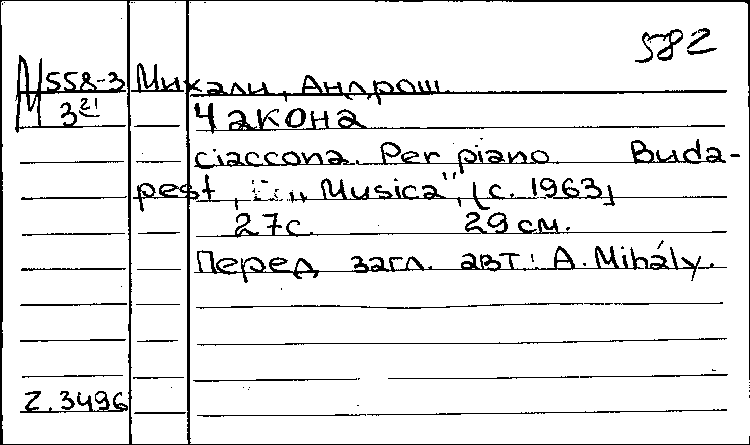 582
М 558-3 Михали, Андрош.
3 21 Чакона
Ciaccona. Per piano. Buda-
pest, „Musica", [c. 1963]
27с. 29 см.
Перед загл. авт.: A. Mihály.
Z.3496